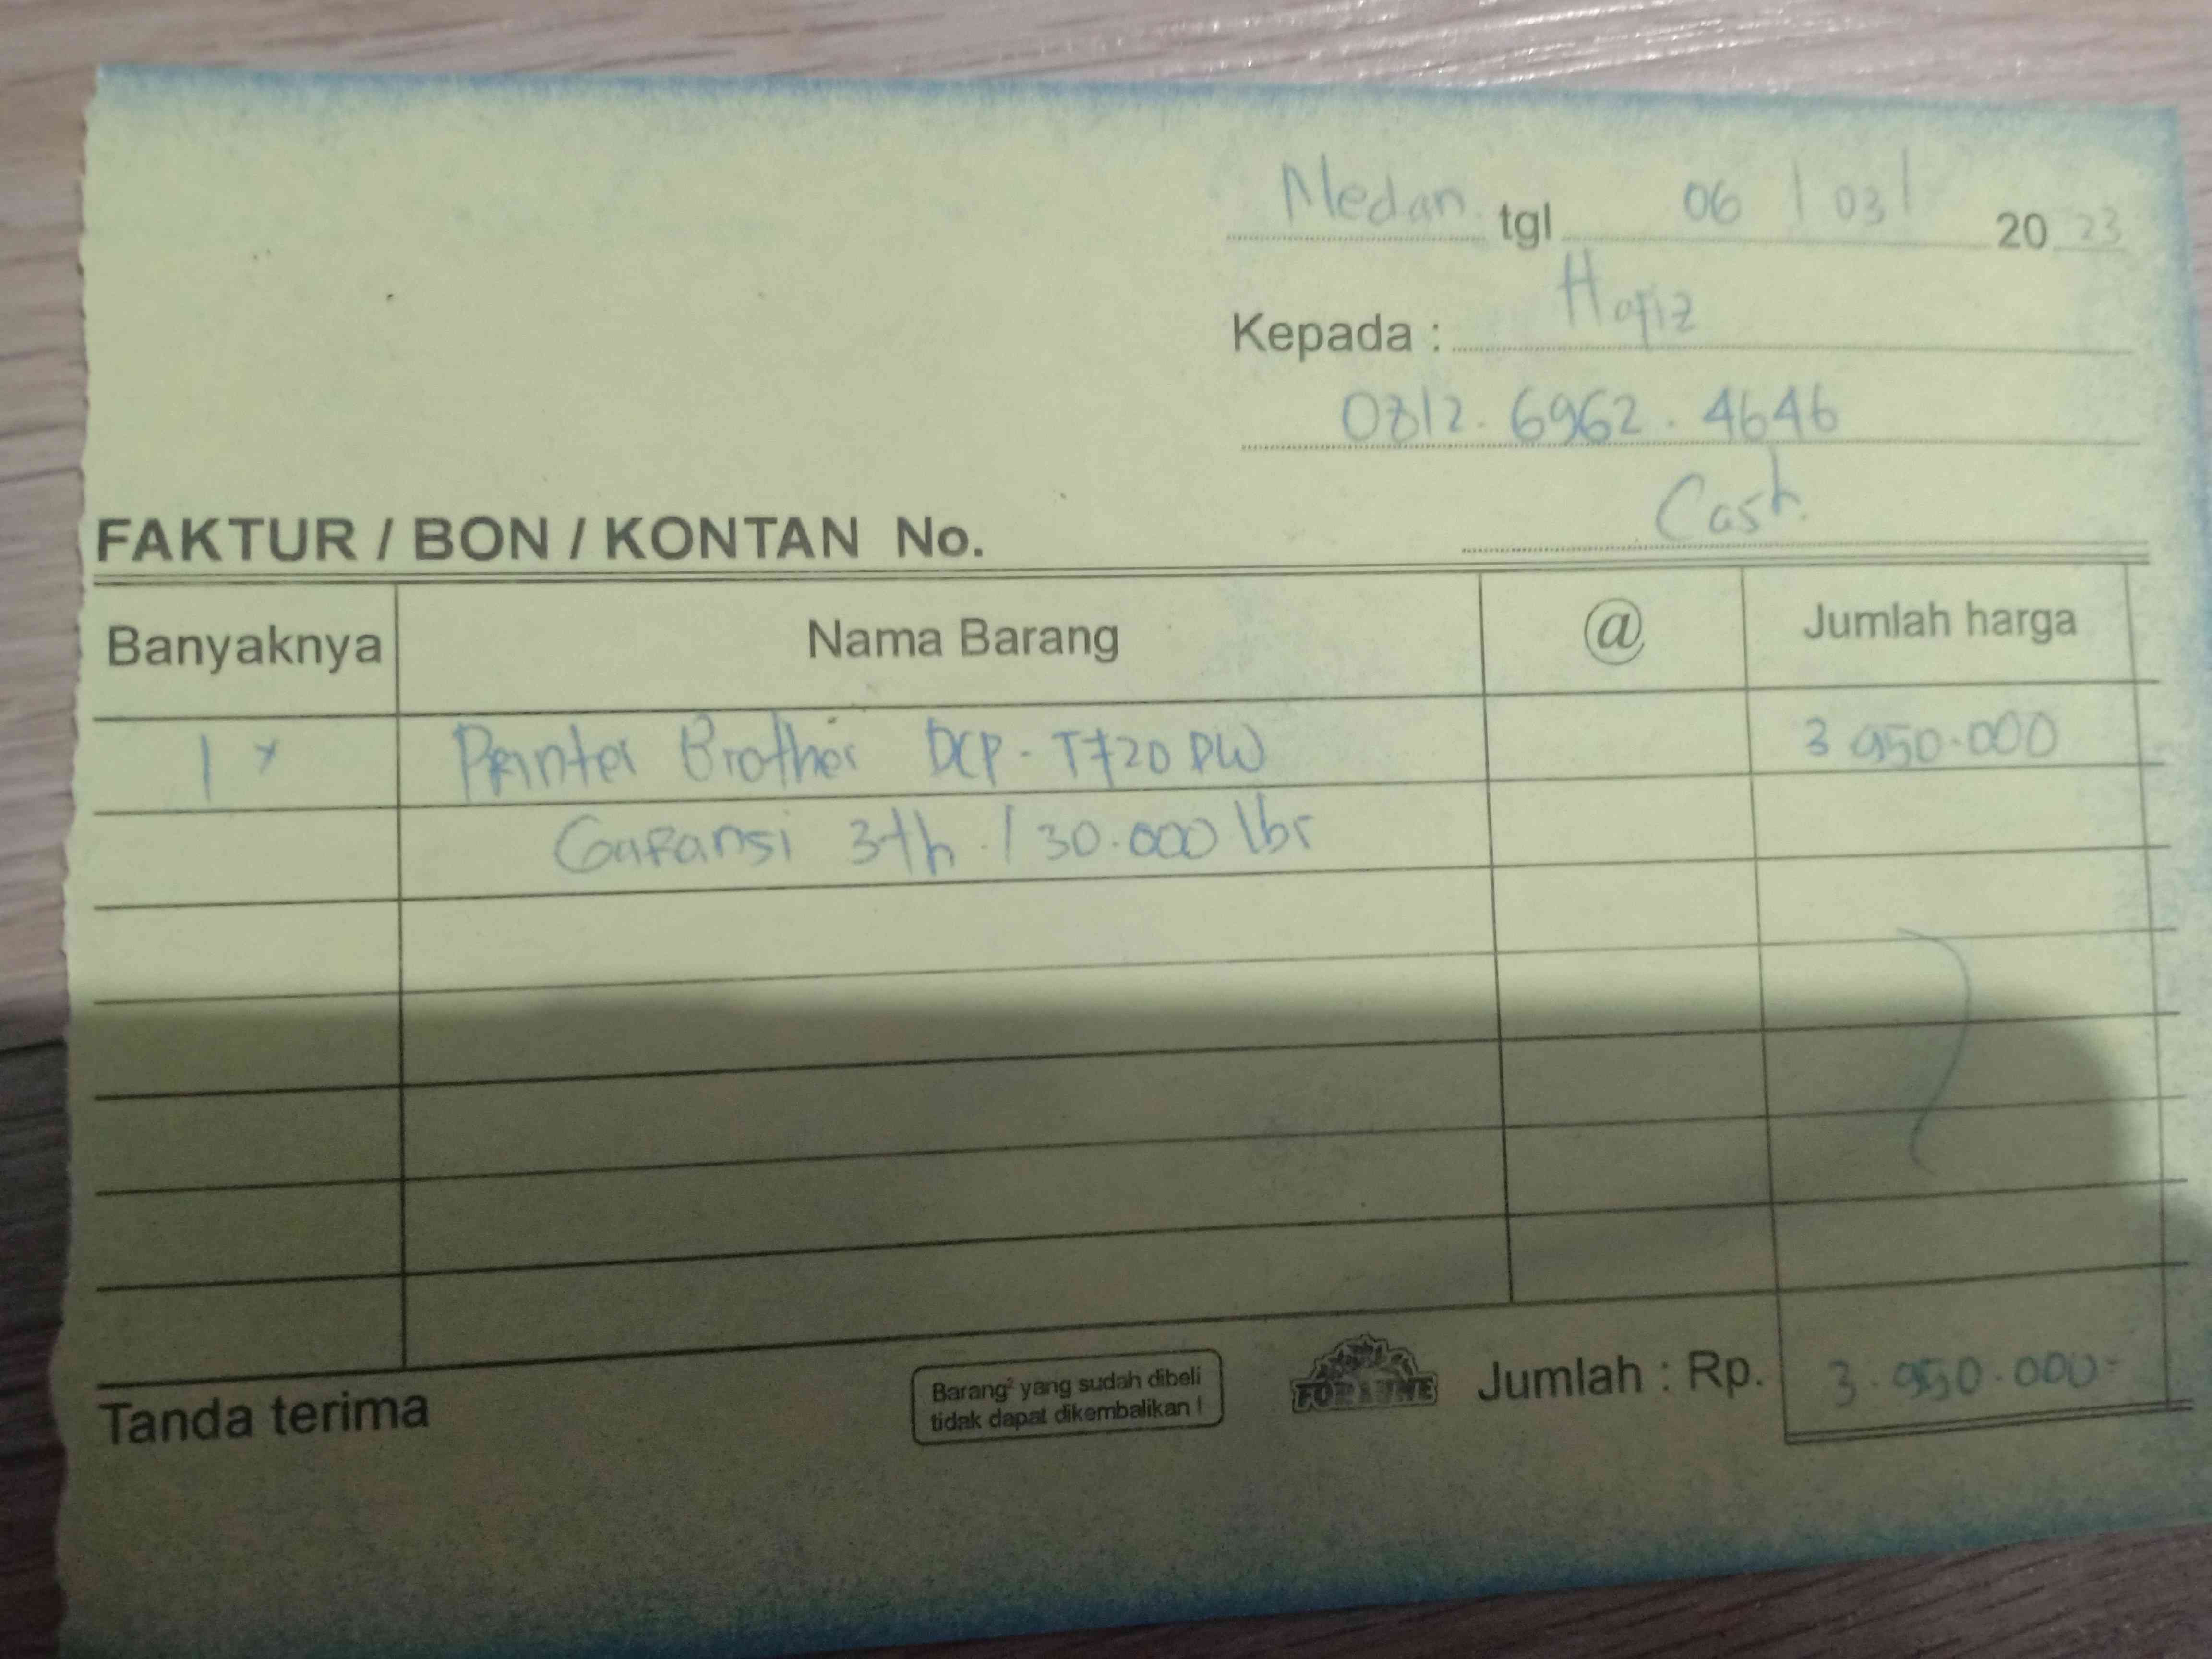 Medan tgl 06 / 03 / 2023
Kepada : Hafiz
0812. 6962. 4646
Cash.
FAKTUR / BON / KONTAN No.
Banyaknya Nama Barang @ Jumlah harga
1 x Printer Brother DCP - T720 DW 3 950.000
Garansi 3 th. / 30.000 lbr
Tanda terima
Barang² yang sudah dibeli
tidak dapat dikembalikan !
FORTUNE
Jumlah : Rp. 3.950.000-